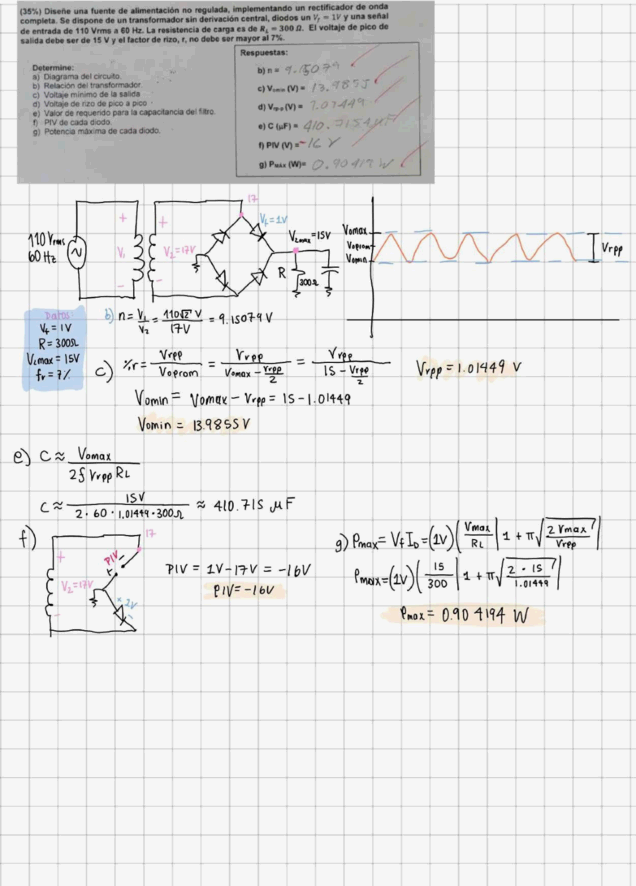 (35%) Diseñe una fuente de alimentación no regulada, implementando un rectificador de onda
completa. Se dispone de un transformador sin derivación central, diodos un Vf = 1V y una señal
de entrada de 110 Vrms a 60 Hz. La resistencia de carga es de RL = 300 Ω. El voltaje de pico de
salida debe ser de 15 V y el factor de rizo, r, no debe ser mayor al 7%.
Determine:
a) Diagrama del circuito.
b) Relación del transformador.
c) Voltaje mínimo de la salida
d) Voltaje de rizo de pico a pico
e) Valor de requerido para la capacitancia del filtro.
f) PIV de cada diodo.
g) Potencia máxima de cada diodo.
Respuestas:
b) n = 9.15079
c) Vomin (V) = 13.9855
d) Vrp-p (V) = 1.01449
e) C (μF) = 410.7154 μF
f) PIV (V) = -16 V
g) PMáx (W)= 0.90419 W
110 Vrms
60 Hz
+
V1
-
+
V2=17V
-
17
Vf=1V
VLmax=15V
R
300Ω
Vomax
Voprom
Vomin
Vrpp
Datos:
Vf = 1V
R = 300Ω
VLmax = 15V
fr = 7%
b) n = V1/V2 = 110√2 V/17V = 9.15079 V
c) %r = Vrpp/Voprom = Vrpp/(Vomax - Vrpp/2) = Vrpp/(15 - Vrpp/2)
Vrpp = 1.01449 V
Vomin = Vomax - Vrpp = 15 - 1.01449
Vomin = 13.9855V
e) C ≈ Vomax/(2f Vrpp RL)
C ≈ 15V/(2 · 60 · 1.01449 · 300Ω) ≈ 410.715 μF
f)
+
V2=17V
-
17
PIV -
+
+ 2V
-
PIV = 1V - 17V = -16V
PIV = -16V
g) Pmax = Vf ID = (1V) (Vmax/RL | 1 + π √(2 Vmax/Vrpp) |
Pmax = (1V) (15/300 | 1 + π √(2 · 15/1.01449) |
Pmax = 0.904194 W